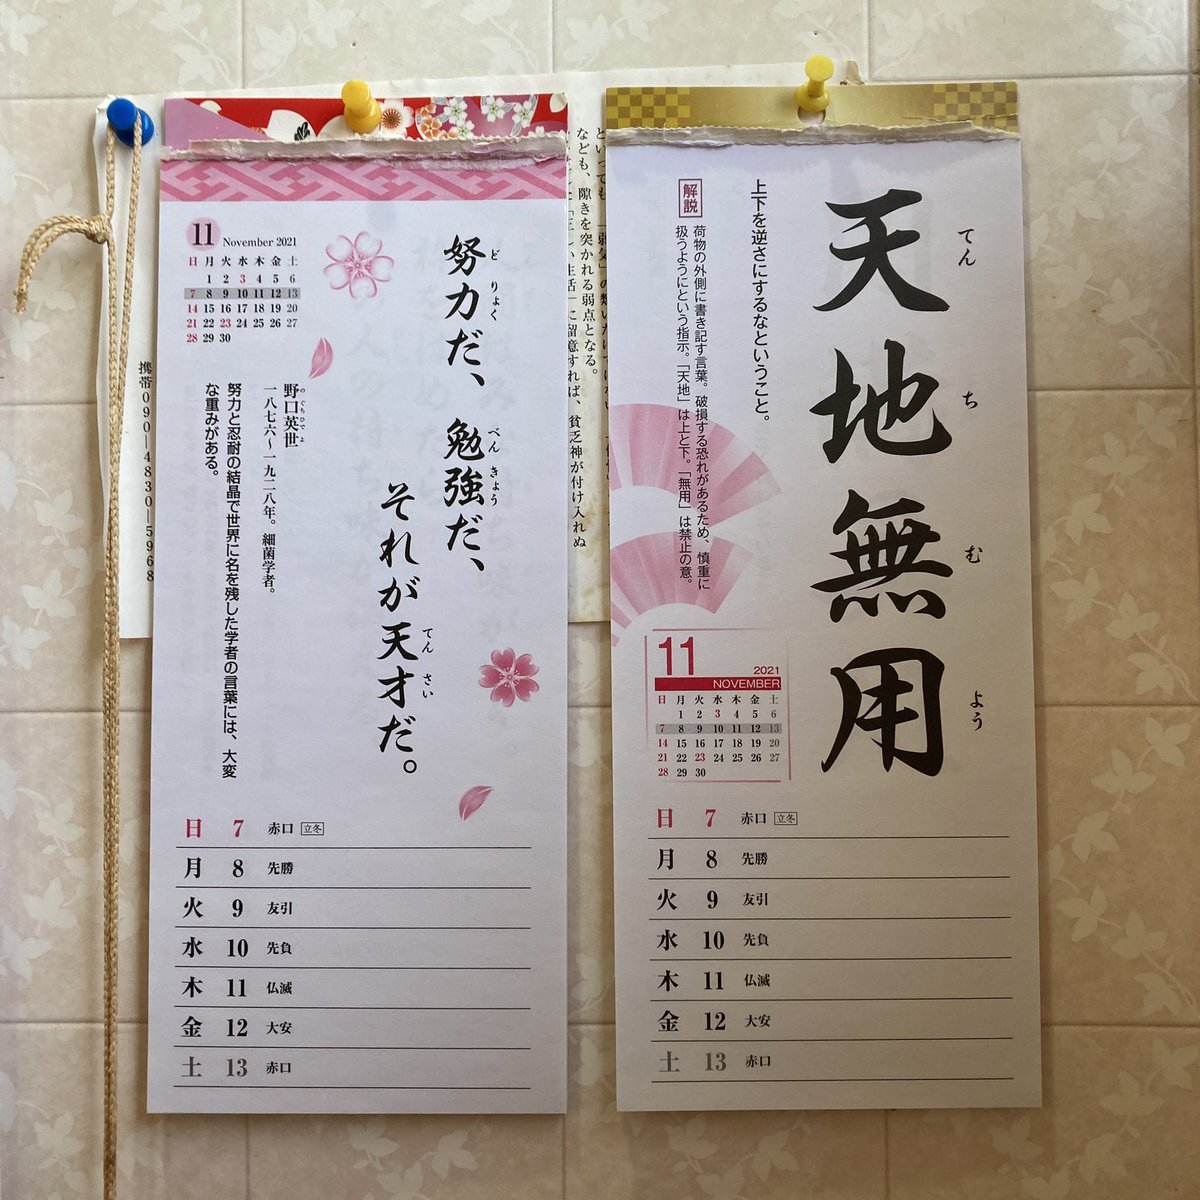 努力だ、勉強だ、
どりょく
べんきょう
それが天才だ。
てんさい
11 November 2021
日 月 火 水 木 金 土
1 2 3 4 5 6
7 8 9 10 11 12 13
14 15 16 17 18 19 20
21 22 23 24 25 26 27
28 29 30
野口英世
のぐちひでよ
一八七六〜一九二八年。細菌学者。
努力と忍耐の結晶で世界に名を残した学者の言葉には、大変
な重みがある。
日 7 赤口 立冬
月 8 先勝
火 9 友引
水 10 先負
木 11 仏滅
金 12 大安
土 13 赤口
天地無用
てんちむよう
上下を逆さにするなということ。
解説
荷物の外側に書き記す言葉。破損する恐れがあるため、慎重に
扱うようにという指示。「天地」は上と下。「無用」は禁止の意。
11 2021
NOVEMBER
日 月 火 水 木 金 土
1 2 3 4 5 6
7 8 9 10 11 12 13
14 15 16 17 18 19 20
21 22 23 24 25 26 27
28 29 30
日 7 赤口 立冬
月 8 先勝
火 9 友引
水 10 先負
木 11 仏滅
金 12 大安
土 13 赤口
なども、隙きを突かれる弱点となる。
生活」に留意すれば、貧乏神が付け入れぬ
携帯090―4830―5968